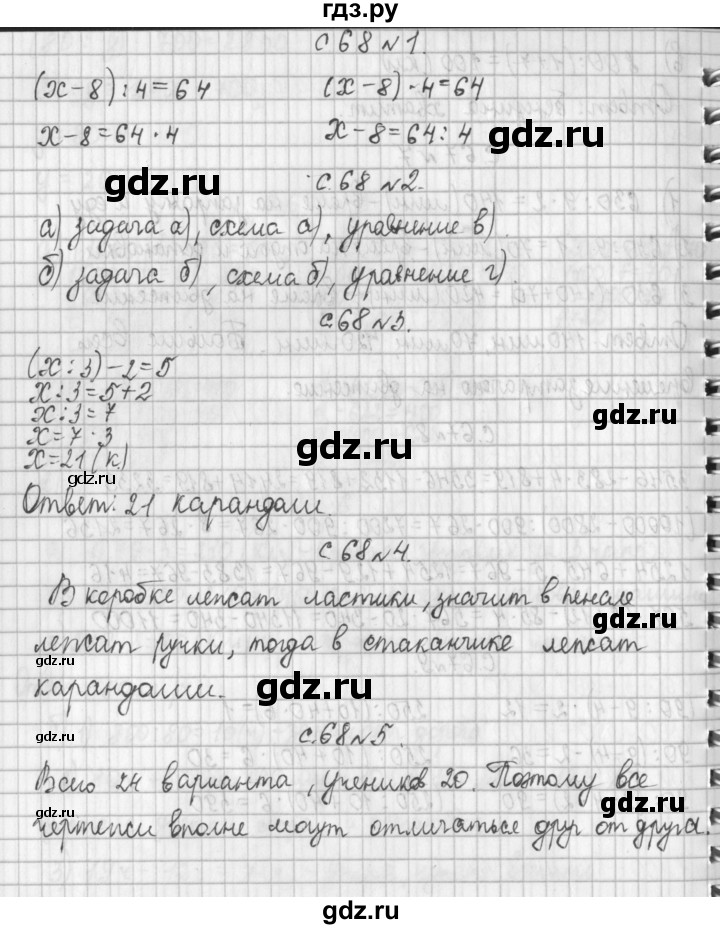 гдз.ру
с 68 №1.
(x-8):4=64 (x-8)·4=64
x-8=64·4 x-8=64:4
gdz.ru
gdz.ru
с.68 №2.
а) задача а), схема а), уравнение в).
б) задача б), схема б), уравнение г).
gdz.ru
с.68 №3.
(x:3)-2=5
x:3=5+2
x:3=7
x=7·3
x=21(к.)
gdz.ru
gdz.ru
gdz.ru
Ответ: 21 карандаш.
с.68 №4.
В коробке лежат ластики, значит в пенале
лежат ручки, тогда в стаканчике лежат
карандаши.
gdz.ru
gdz.ru
gdz.ru
с.68 №5.
Всего 24 варианта, учеников 20. Поэтому все
чертежи вполне могут отличаться друг от друга.
gdz.ru
gdz.ru
gdz.ru